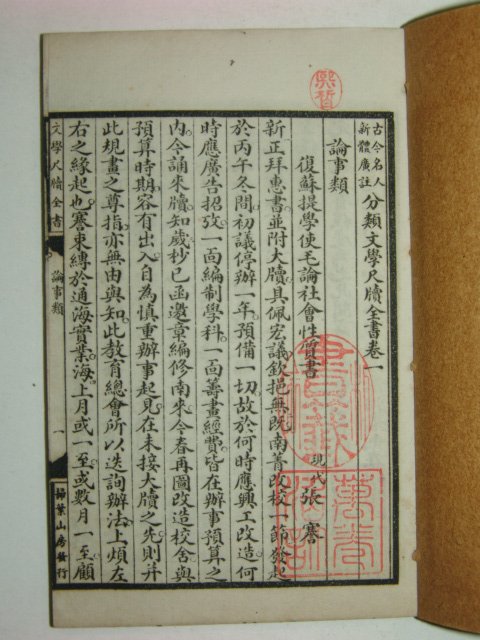 古今名人
新體廣註
分類文學尺牘全書卷一
論事類
復蘇提學使毛論社會性質書
現代 張謇
新正拜惠書並附大牘具佩宏議欽挹無旣南菁改校一節發起
於丙午冬間初議停辦一年預備一切故於何時應興工改造何
時應廣告招攷一面編制學科一面籌畫經費皆在辦事預算之
內今誦來牘知歲杪已函邀章編修南來今春再圖改造校舍與
預算時期容有出入自為慎重辦事起見在未接大牘之先則并
此規畫之尊指亦無由與知此教育總會所以迭詢辦法上煩左
右之緣起也謇束縛於通海實業海上月或一至或數月一至顧
文學尺牘全書
論事類
一
掃葉山房發行
熙哲